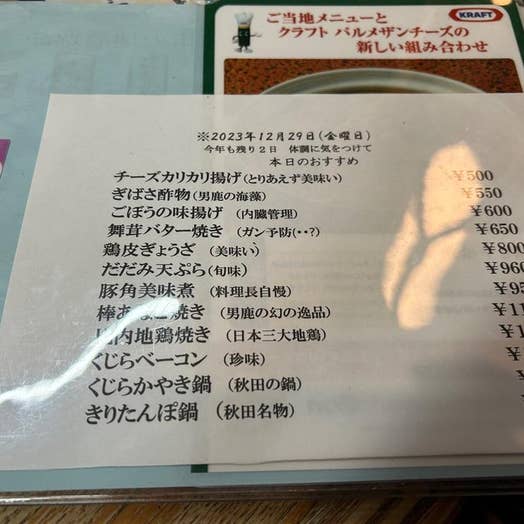 ご当地メニューと
クラフト パルメザンチーズの
新しい組み合わせ
KRAFT
※2023年12月29日(金曜日)
今年も残り2日 体調に気をつけて
本日のおすすめ
チーズカリカリ揚げ(とりあえず美味い) ¥500
ぎばさ酢物(男鹿の海藻) ¥550
ごぼうの味揚げ (内臓管理) ¥600
舞茸バター焼き (ガン予防(・・?) ¥650
鶏皮ぎょうざ (美味い) ¥800
だだみ天ぷら(旬味) ¥960
豚角美味煮 (料理長自慢)
焼き (男鹿の幻の逸品)
内地鶏焼き (日本三大地鶏)
くじらベーコン (珍味)
くじらかやき鍋 (秋田の鍋)
きりたんぽ鍋 (秋田名物)